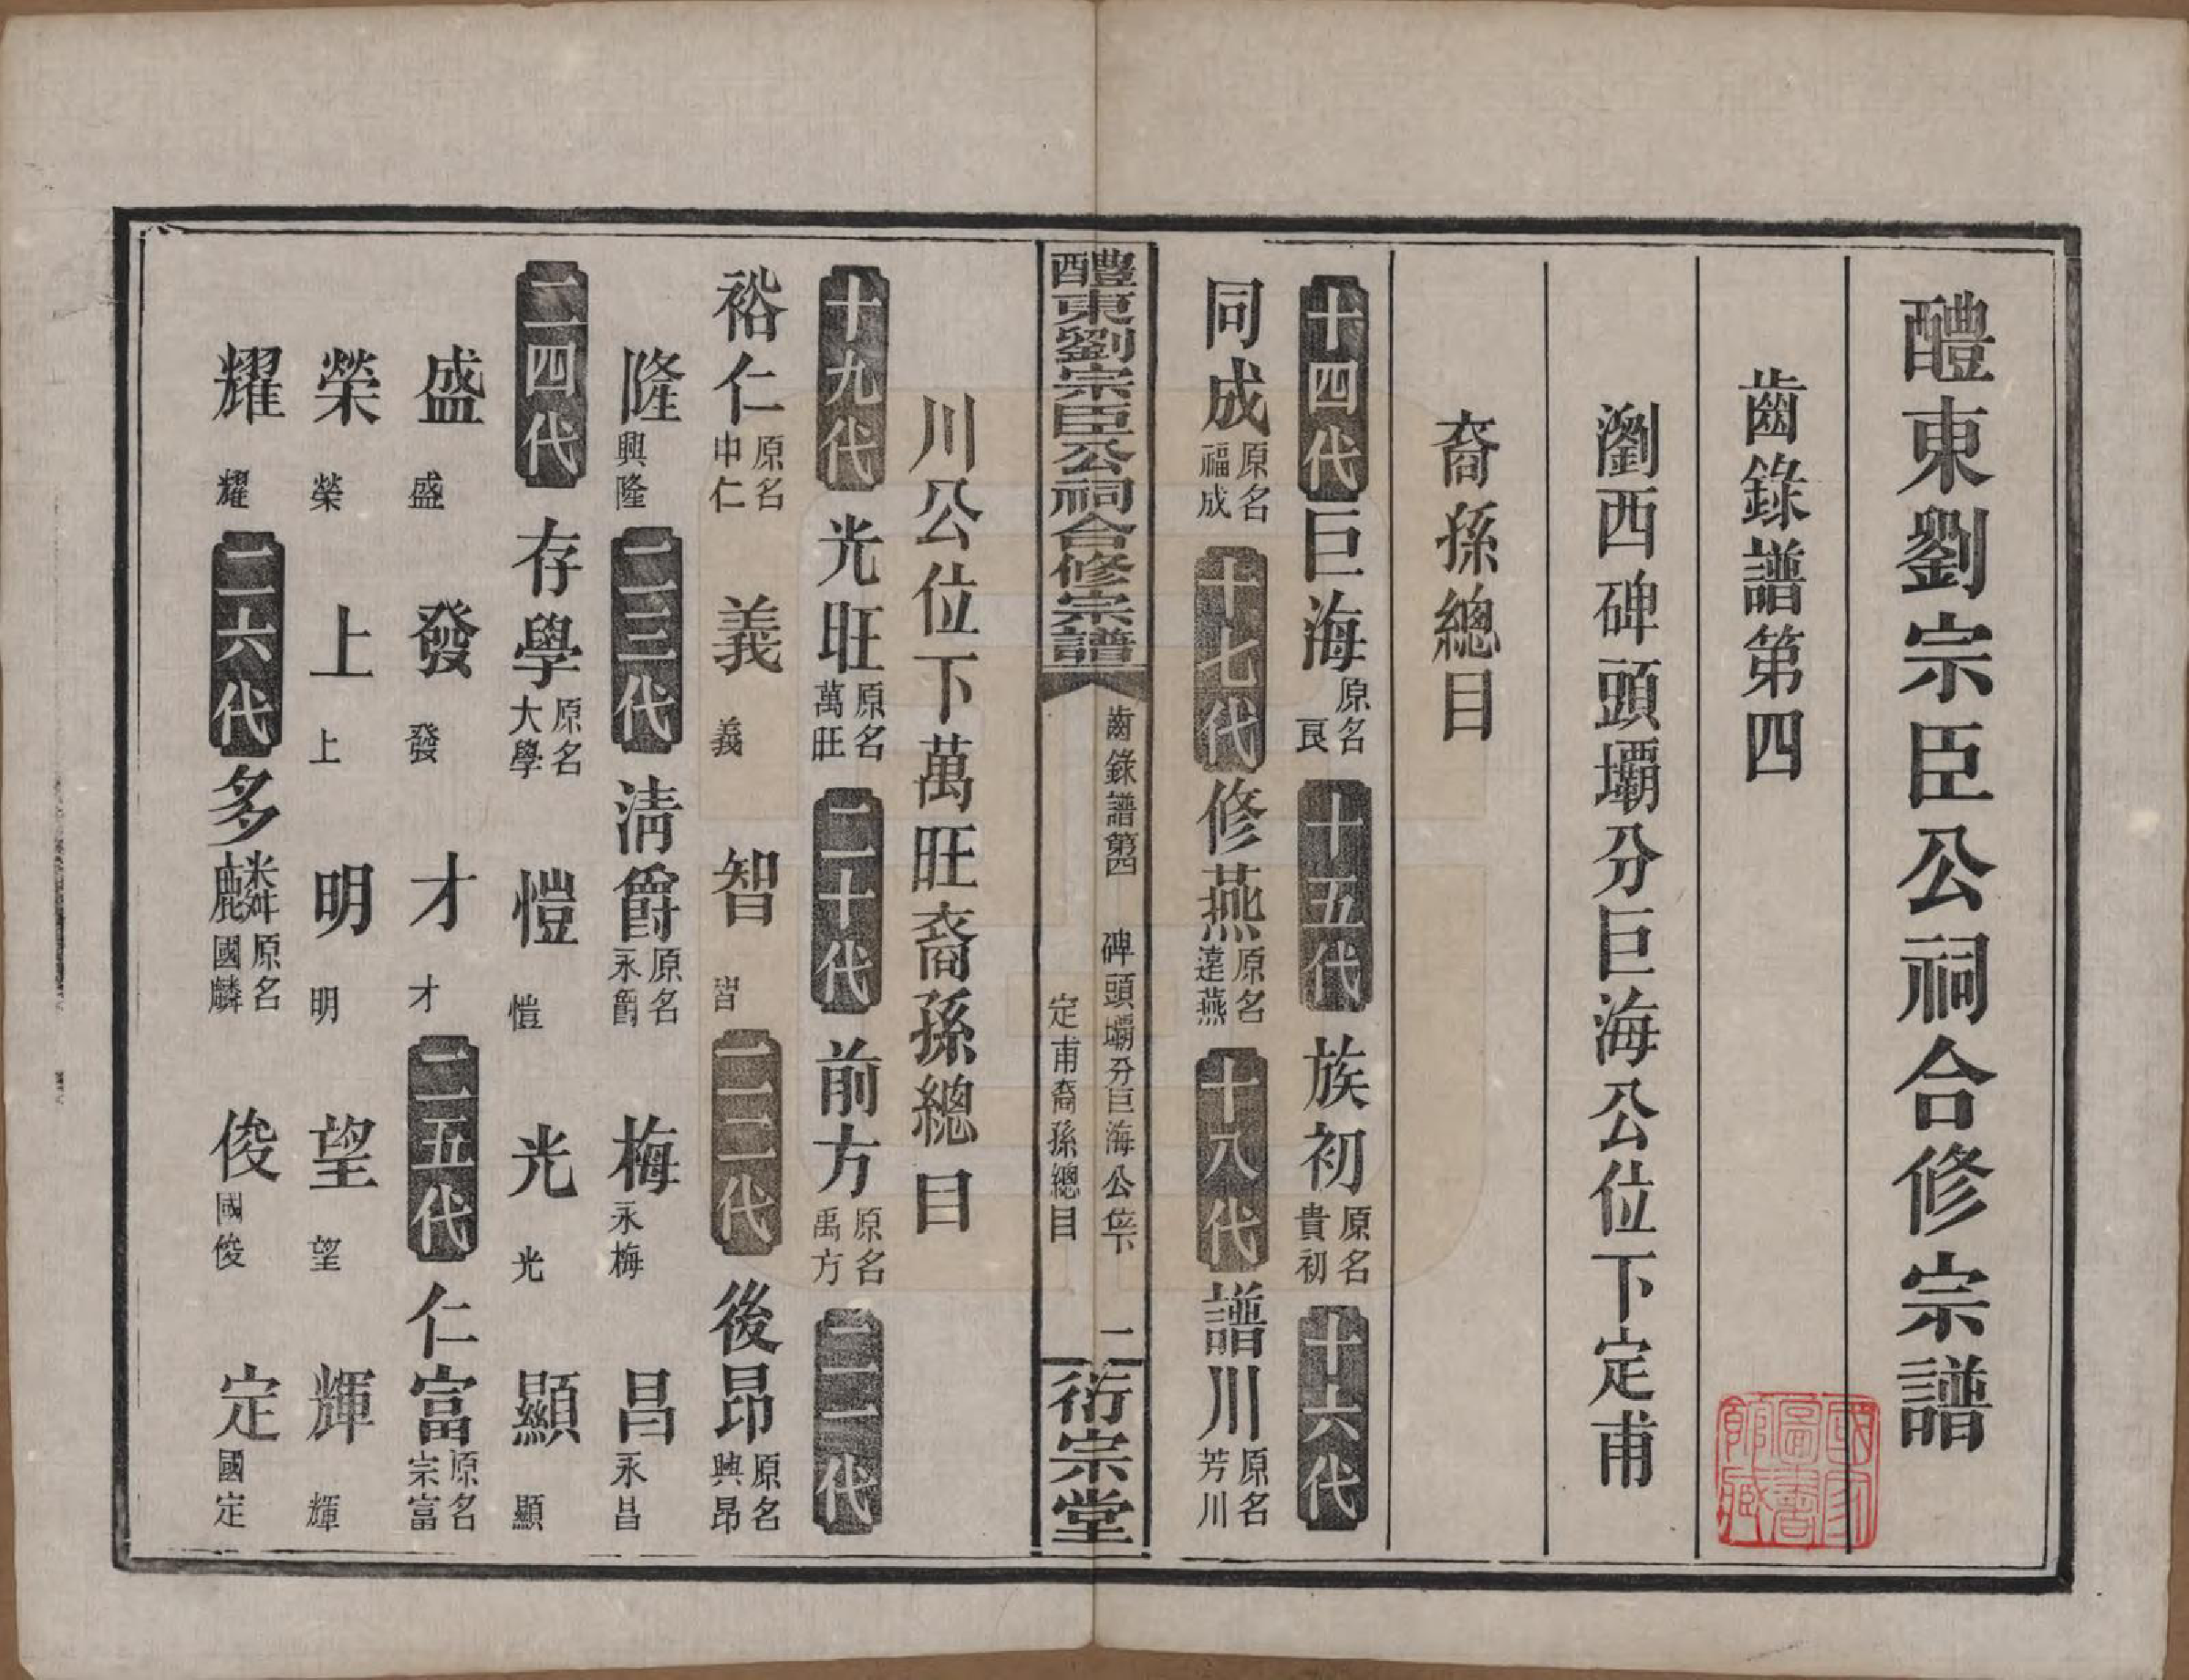 醴東劉宗臣公祠合修宗譜
齒錄譜第四
瀏西碑頭壩分巨海公位下定甫
裔孫總目
十四代 巨海 原名良 十五代 族初 原名貴初 十六代
同成 原名福成 十七代 修燕 原名達燕 十八代 譜川 原名芳川
醴東劉宗臣公祠合修宗譜 齒錄譜第四 碑頭壩分巨海公位下定甫裔孫總目 一 衍宗堂
川公位下萬旺裔孫總目
十九代 光旺 原名萬旺 二十代 前方 原名禹方 二一代
裕仁 原名申仁 義 義 智 智 二二代 後昂 原名興昂
隆 興隆 二三代 清爵 原名永爵 梅 永梅 昌 永昌
二四代 存學 原名大學 愷 愷 光 光 顯 顯
盛 盛 發 發 才 才 二五代 仁富 原名宗富
榮 榮 上 上 明 明 望 望 輝 輝
耀 耀 二六代 多麟 原名國麟 俊 國俊 定 國定
國家圖書館藏